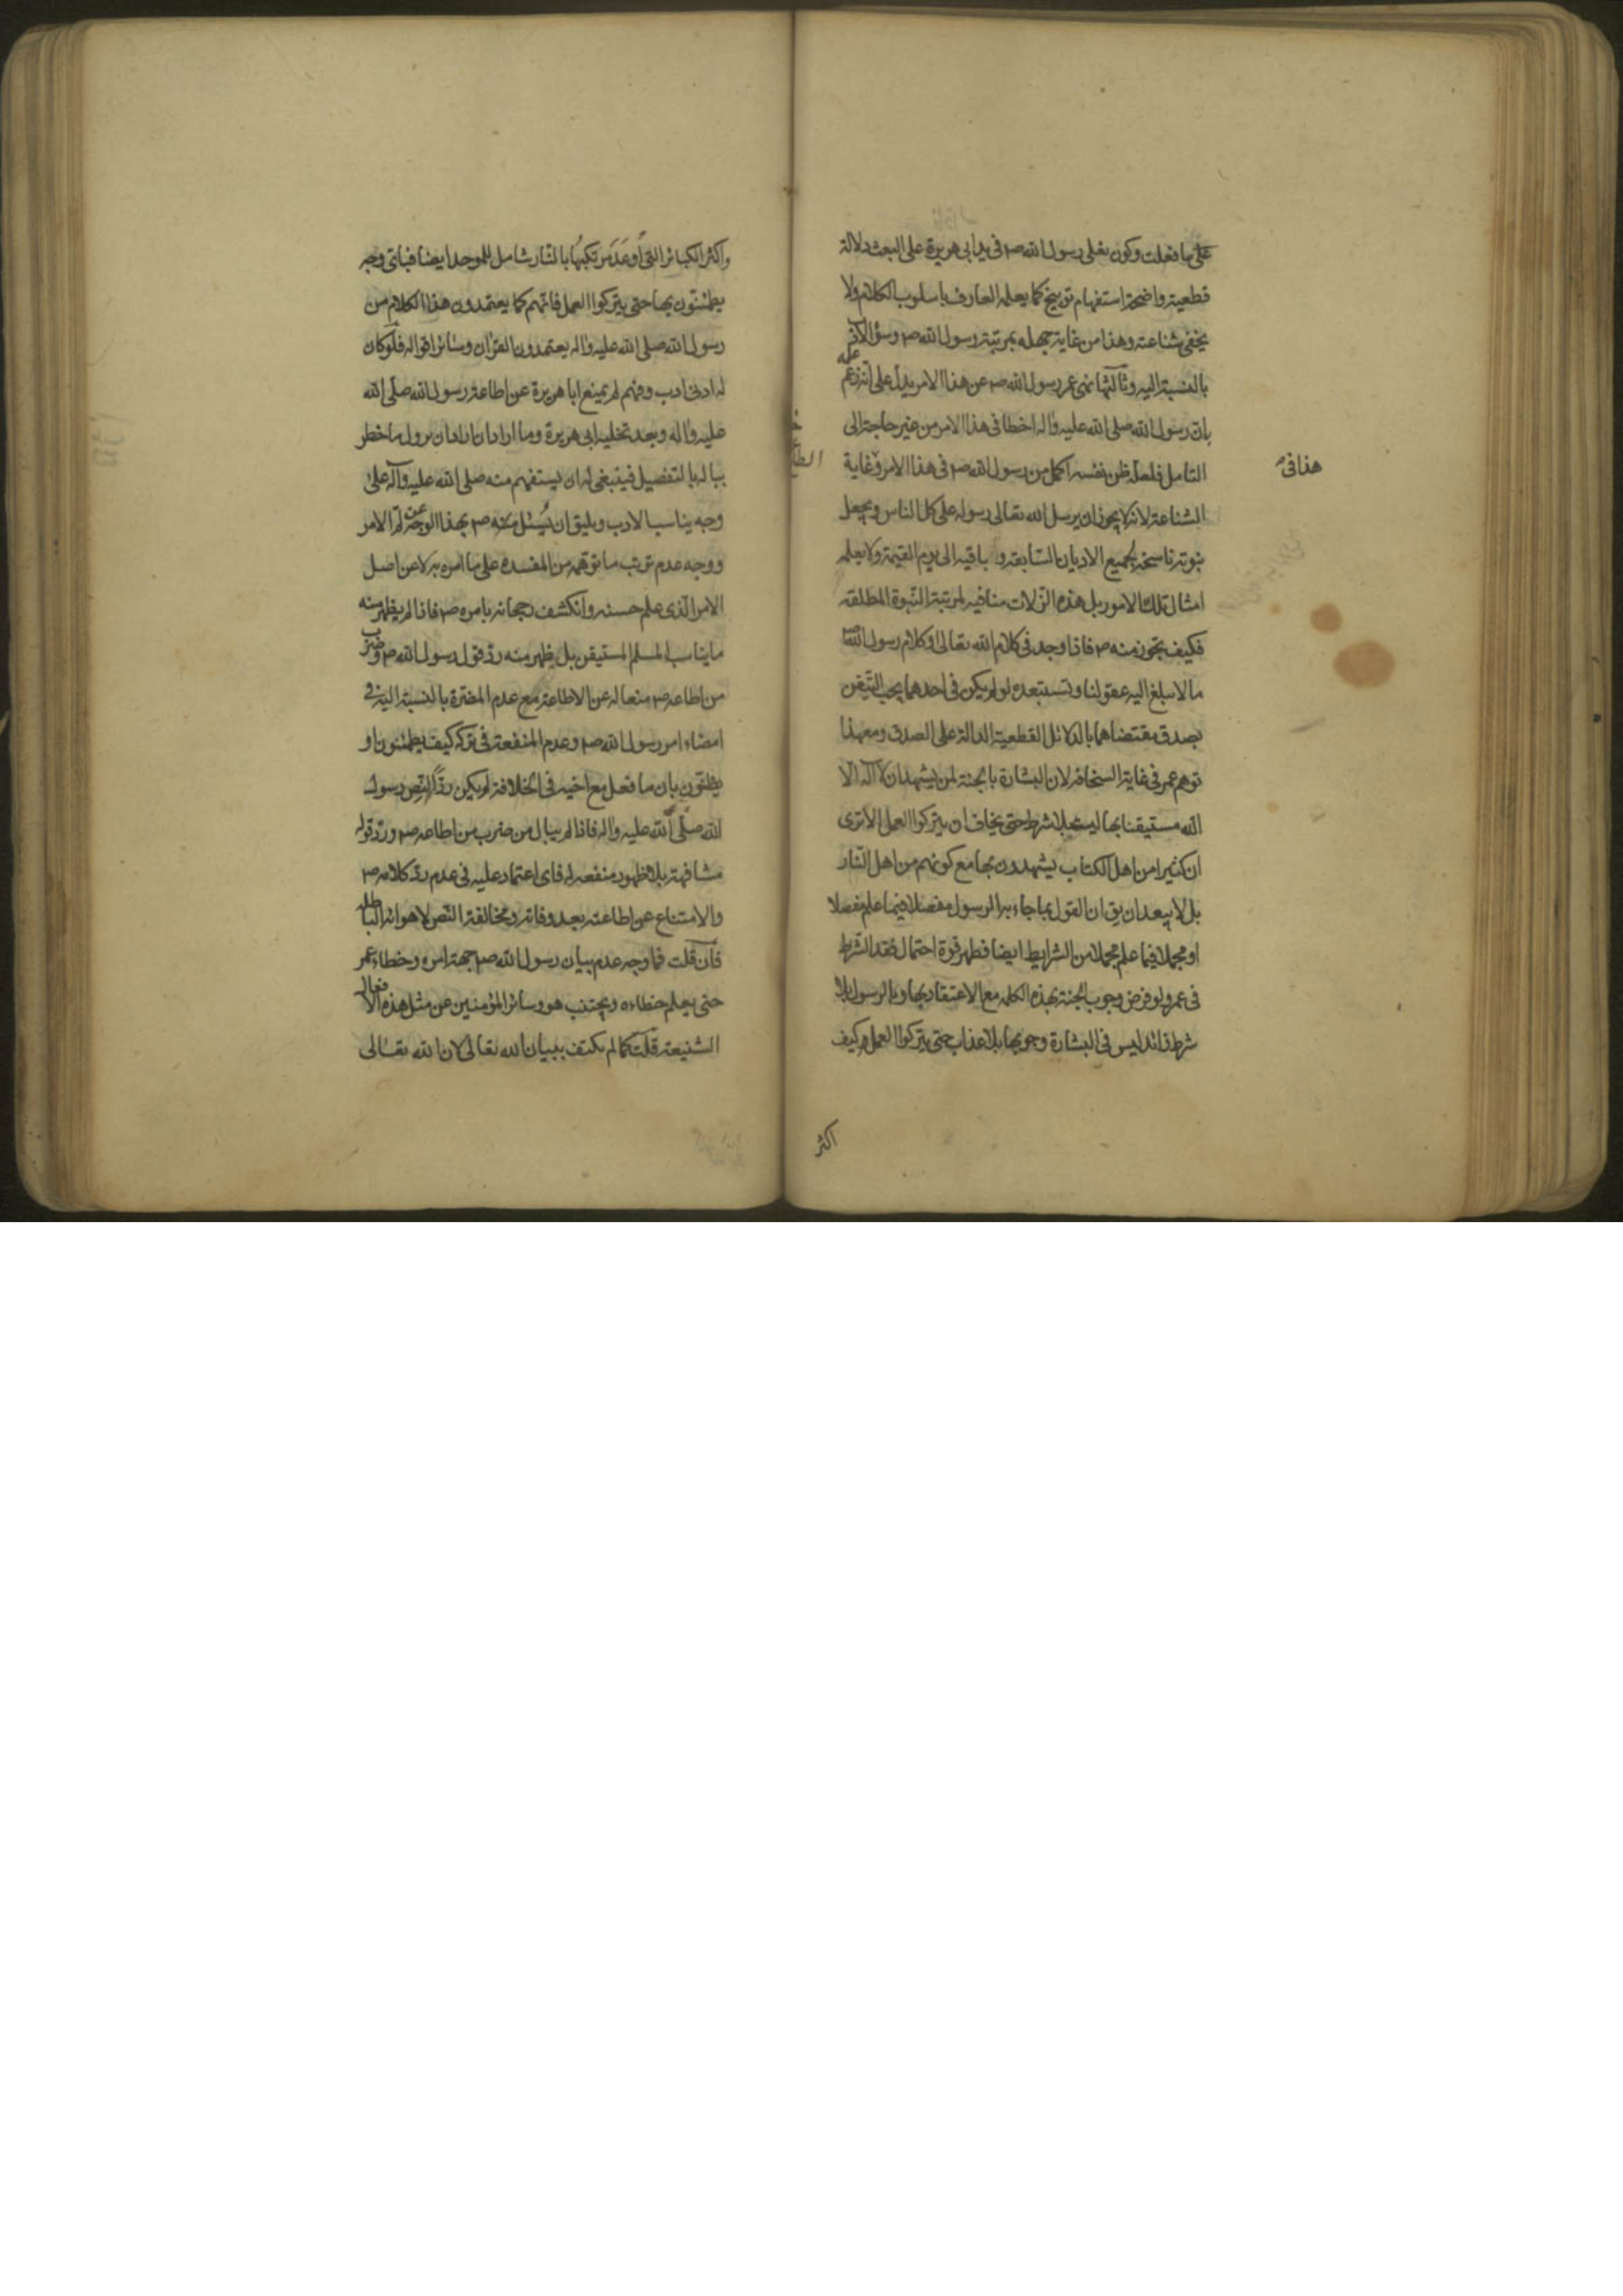 على ما فعلت وكون نعلى رسول الله ص فى يد ابى هريرة على البعث دلالة
قطعية واضحة استفهام توبيخ كما يعلمه العارف باسلوب الكلام ولا
يخفى شناعته وهذا من غاية جهله بمرتبة رسول الله ص وسؤالاته
بالنسبة اليه وثالثها نهى عمر رسول الله ص عن هذا الامر يدل على انه زعم
بان رسول الله صلى الله عليه واله اخطا فى هذا الامر من غير حاجة الى
التامل فلعله ظن نفسه اكمل من رسول الله ص فى هذا الامر وغاية
هذا فى
الشناعة لانه لا يجوز ان يرسل الله تعالى رسوله على كل الناس ويجعل
نبوته ناسخة لجميع الاديان السابقة وباقية الى يوم القيمة ولا يعلمه
امثال تلك الامور بل هذه الزلات منافية لمرتبة النبوة المطلقة
فكيف تجوز منه ص فاذا وجد فى كلام الله تعالى او كلام رسول الله ص
ما لا يبلغ اليه عقولنا وتستبعده لو لم يكن فى احدهما يجب التيقن
بصدق مقتضاهما بالدلائل القطعية الدالة على الصدق ومعهذا
توهم عمر فى غاية السخافة لان البشارة بالجنة لمن يشهد ان لا اله الا
الله مستيقنا بها ليست بلا شرط حتى يخاف ان يتركوا العمل الا ترى
ان كثيرا من اهل الكتاب يشهدون بها مع كونهم من اهل النار
بل لا يبعد ان يق ان القول بما جاء به الرسول مفصلا فيما علم مفصلا
او مجملا فيما علم مجملا من الشرايط ايضا فظهر قوة احتمال فقد الشرط
فى عمر ولو فرض وجوب الجنة بهذه الكلمة مع الاعتقاد بها وبالرسول بلا
شرط زائد ليس فى البشارة وجوبها بلا عذاب حتى يتركوا العمل كيف
اكثر
واكثر الكبائر التى اوعد مرتكبها بالنار شامل للموحد ايضا فباى وجه
يطمئنون بها حتى يتركوا العمل فانهم كما يعتمدون هذا الكلام من
رسول الله صلى الله عليه واله يعتمدون القران وسائر اقواله فلو كان
له ادنى ادب وفهم لم يمنع ابا هريرة عن اطاعة رسول الله صلى الله
عليه واله وبعد تخليه ابى هريرة وما اراد ان اراد ان يزول ما خطر
بباله بالتفصيل فينبغى له ان يستفهم منه صلى الله عليه وآله على
وجه يناسب الادب ويليق ان يسئل منه ص بهذا الوجه عن لم الامر
ووجه عدم ترتب ما توهمه من المفسدة على ما امره به لا عن اصل
الامر الذى علم حسنه وانكشف رجحانه بامره ص فاذا لم يظهر منه
ما يناسب المسلم المستيقن بل يظهر منه رد قول رسول الله ص وضرب
من اطاعه ص منعا له عن الاطاعة مع عدم المضرة بالنسبة اليه فى
امضاء امر رسول الله ص وعدم المنفعة فى تركه كيف يطمئنون او
يظنون بان ما فعل مع اخيه فى الخلافة لم يكن ردا لنص رسول
الله صلى الله عليه واله فاذا لم يبال من ضرب من اطاعه ص ورد قوله
مشافهة بلا ظهور منفعة له فاى اعتماد عليه فى عدم رد كلامه ص
والامتناع عن اطاعته بعد وفاته ومخالفة النص لاهوائه الباطلة
فان قلت فما وجه عدم بيان رسول الله ص جهة امره وخطاء عمر
حتى يعلم خطاءه ويجتنب هو وسائر المؤمنين عن مثل هذه الافعال
الشنيعة قلت كما لم يكتف ببيان الله تعالى لان الله تعالى